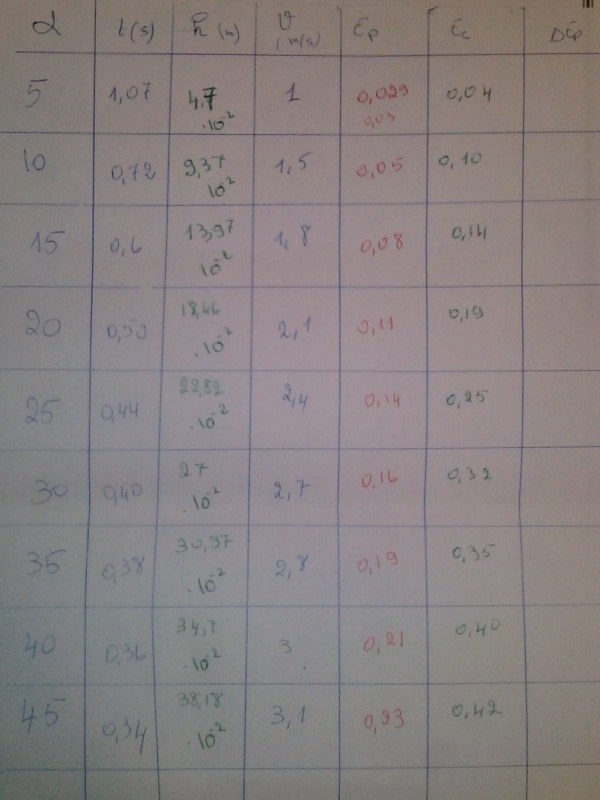 α t(s) h (m) v (m/s) Ep Ec ΔEp
5 1,07 4,7 .10⁻² 1 0,029 0,03 0,04
10 0,72 9,37 10⁻² 1,5 0,05 0,10
15 0,6 13,97 10⁻² 1,8 0,08 0,14
20 0,50 18,46 .10⁻² 2,1 0,11 0,19
25 0,44 22,82 .10⁻² 2,4 0,14 0,25
30 0,40 27 .10⁻² 2,7 0,16 0,32
35 0,38 30,97 .10⁻² 2,8 0,19 0,35
40 0,36 34,7 .10⁻² 3 0,21 0,40
45 0,34 38,18 .10⁻² 3,1 0,23 0,42